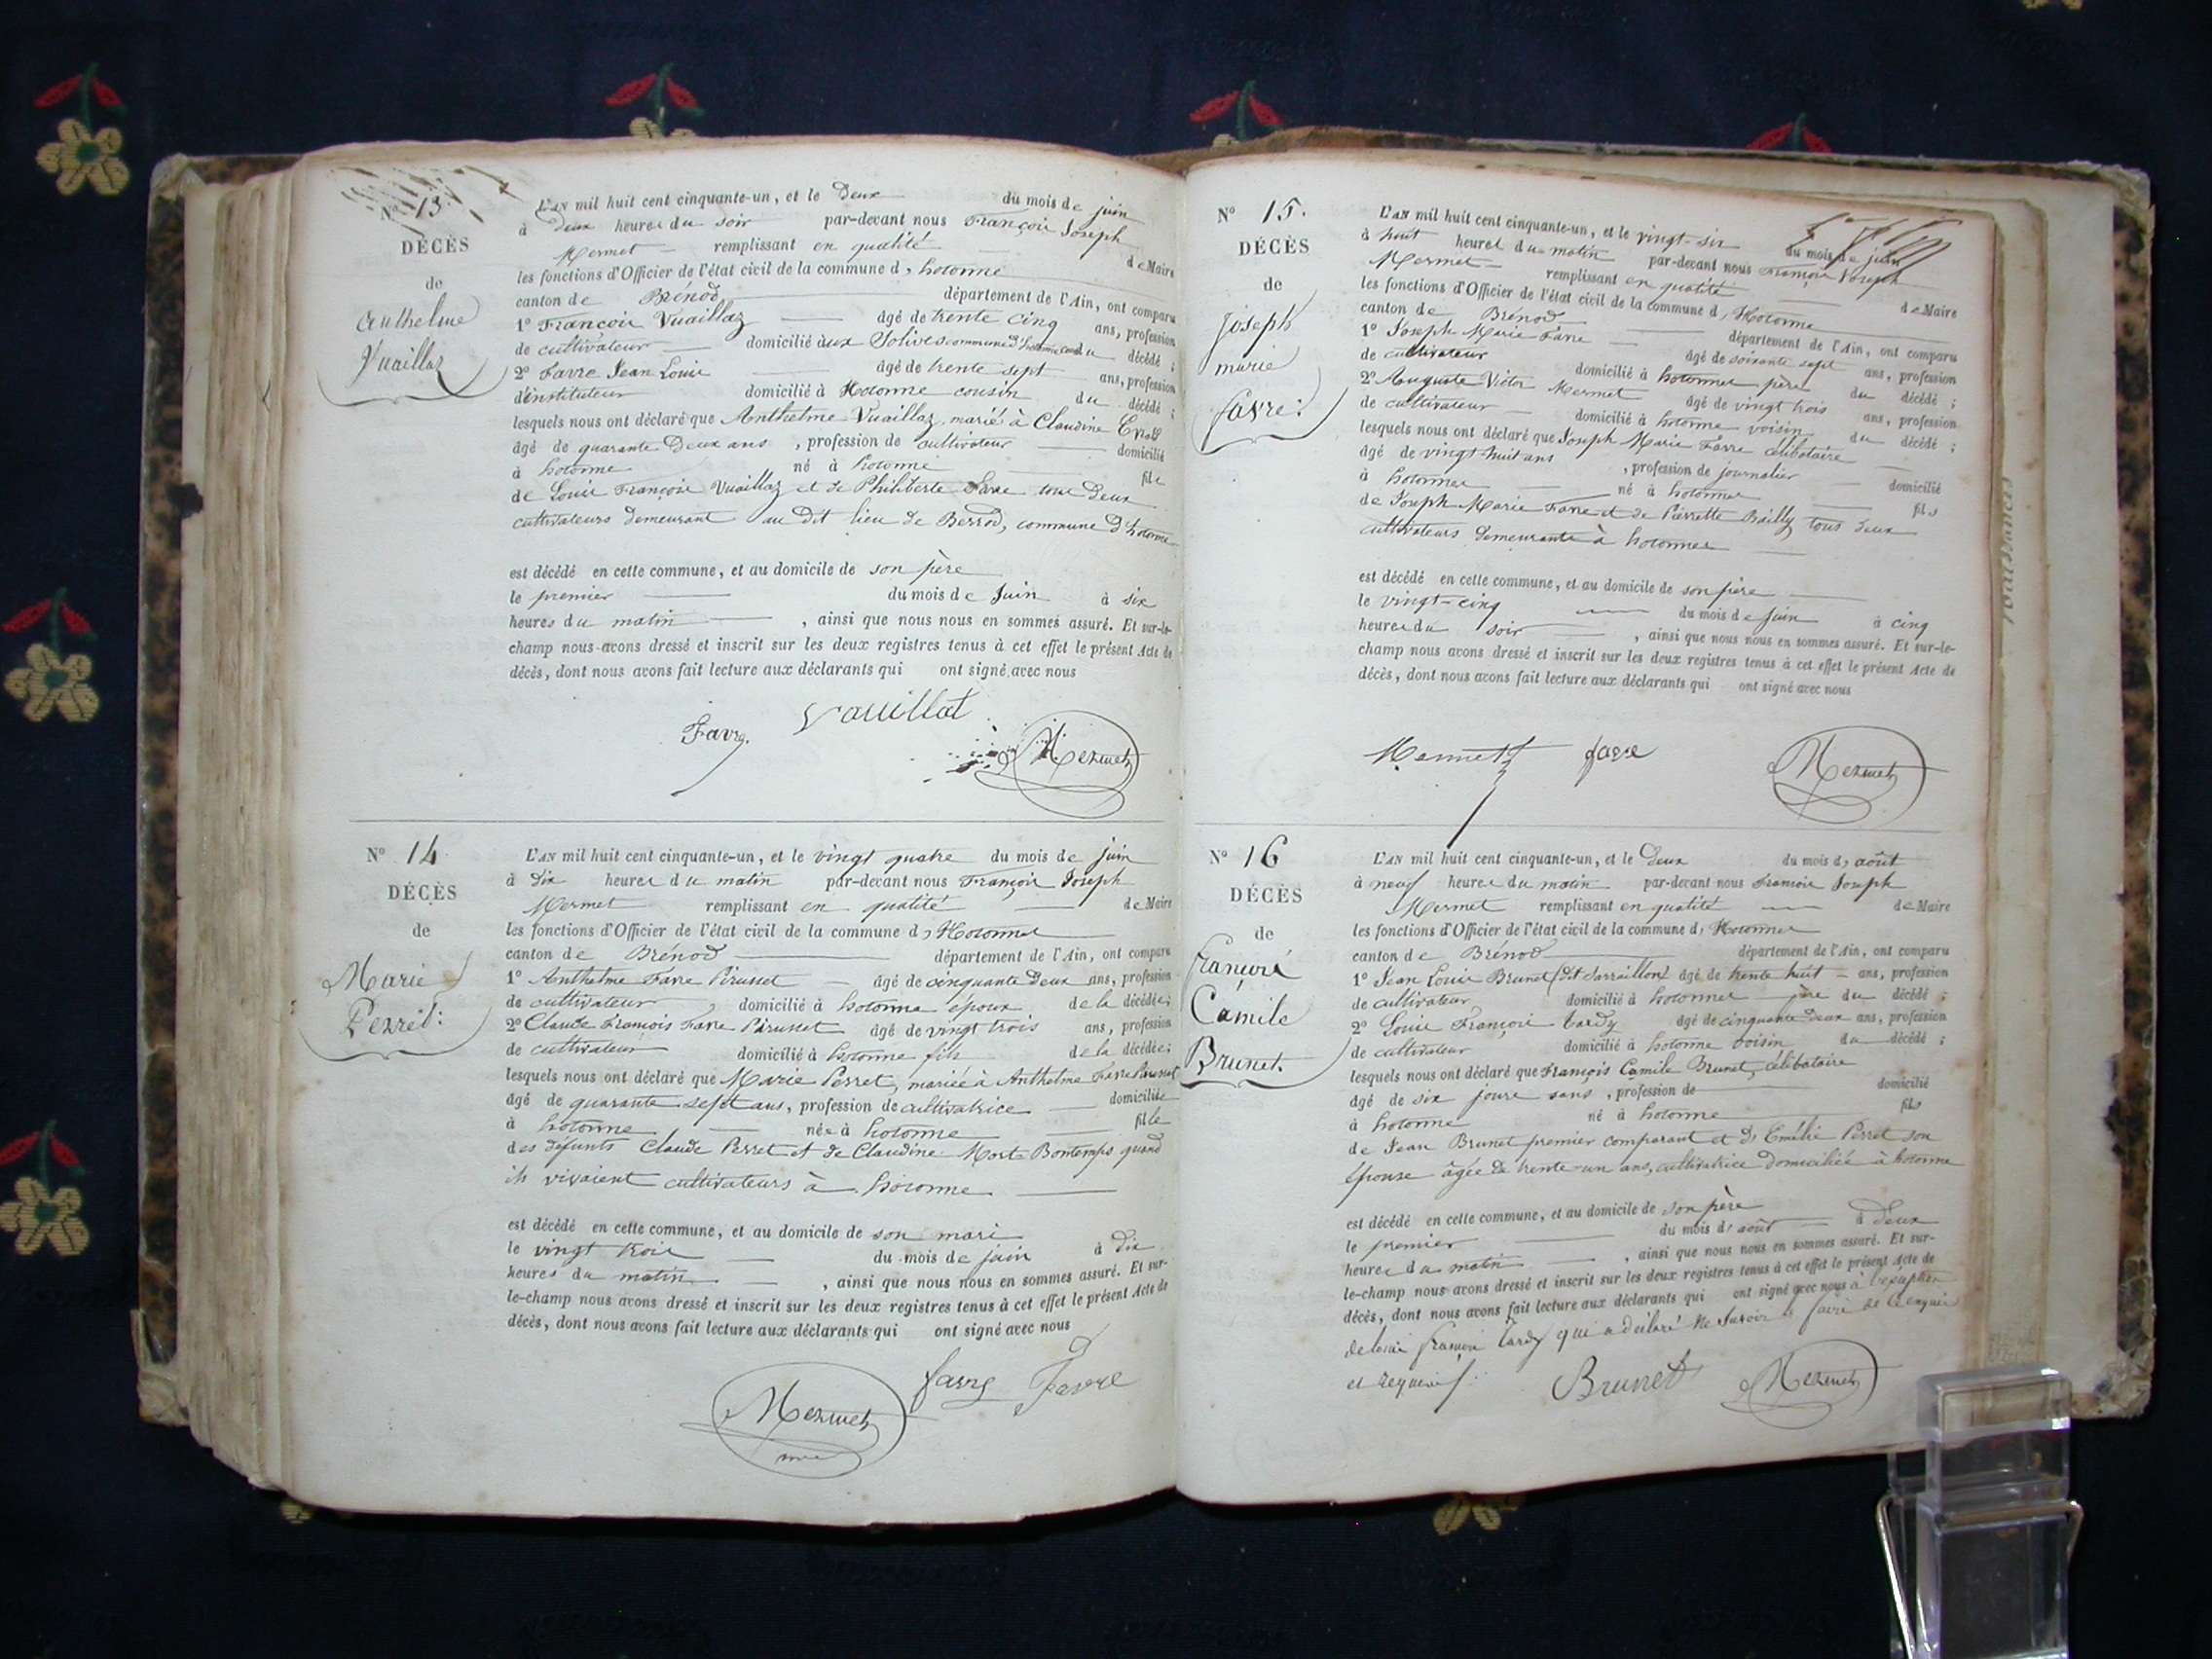 N° 13.
DÉCÈS
de
Anthelme
Vuaillaz
L'AN mil huit cent cinquante-un, et le Deux du mois de juin
à Deux heures du soir par-devant nous François Joseph
Mermet remplissant en qualité de Maire
les fonctions d'Officier de l'état civil de la commune d'hotonne
canton de Brénod département de l'Ain, ont comparu
1° François Vuaillaz âgé de trente cinq ans, profession
de cultivateur domicilié aux Solives commune d'hotonne du décédé ;
2° Favre Jean Louis âgé de trente sept ans, profession
d'instituteur domicilié à Hotonne cousin du décédé ;
lesquels nous ont déclaré que Anthelme Vuaillaz, marié à Claudine
âgé de quarante Deux ans, profession de cultivateur domicilié
à hotonne né à hotonne fils
de Louis François Vuaillaz et de Philiberte Favre tous deux
cultivateurs demeurant au dit lieu de Berrod, commune d'hotonne
est décédé en cette commune, et au domicile de son père
le premier du mois de Juin à six
heures du matin, ainsi que nous nous en sommes assuré. Et sur-le-
champ nous avons dressé et inscrit sur les deux registres tenus à cet effet le présent Acte de
décès, dont nous avons fait lecture aux déclarants qui ont signé avec nous
Vauillat
Favre
Mermet
N° 14
DÉCÈS
de
Marie
Perret:
L'AN mil huit cent cinquante-un, et le vingt quatre du mois de juin
à Dix heures du matin par-devant nous François Joseph
Mermet remplissant en qualité de Maire
les fonctions d'Officier de l'état civil de la commune d'Hotonnes
canton de Brénod département de l'Ain, ont comparu
1° Anthelme Favre Pirusset âgé de cinquante Deux ans, profession
de cultivateur domicilié à hotonne époux de la décédée ;
2° Claude François Favre Pirusset âgé de vingt trois ans, profession
de cultivateur domicilié à hotonne fils de la décédée ;
lesquels nous ont déclaré que Marie Perret, mariée à Anthelme Favre Pirusset
âgé de quarante sept ans, profession de cultivatrice domiciliée
à hotonne née à hotonne fille
des défunts Claude Perret et de Claudine Mort Bontemps quand
ils vivaient cultivateurs à hotonne
est décédé en cette commune, et au domicile de son mari
le vingt trois du mois de juin à Dix
heures du matin, ainsi que nous nous en sommes assuré. Et sur-
le-champ nous avons dressé et inscrit sur les deux registres tenus à cet effet le présent Acte de
décès, dont nous avons fait lecture aux déclarants qui ont signé avec nous
favre Favre
Mermet
N° 15.
DÉCÈS
de
Joseph
marie
favre:
L'AN mil huit cent cinquante-un, et le vingt-six du mois de juin
à huit heures du matin par-devant nous François Joseph
Mermet remplissant en qualité de Maire
les fonctions d'Officier de l'état civil de la commune d'Hotonne
canton de Brénod département de l'Ain, ont comparu
1° Joseph Marie Favre âgé de soixante sept ans, profession
de cultivateur domicilié à hotonnes père du décédé ;
2° Auguste Victor Mermet âgé de vingt trois ans, profession
de cultivateur domicilié à hotonne voisin du décédé ;
lesquels nous ont déclaré que Joseph Marie Favre célibataire
âgé de vingt huit ans, profession de journalier domicilié
à hotonnes né à hotonnes fils
de Joseph Marie Favre et de Pierrette Bailly tous deux
cultivateurs demeurants à hotonnes
est décédé en cette commune, et au domicile de son père
le vingt-cinq du mois de Juin à cinq
heures du soir, ainsi que nous nous en sommes assuré. Et sur-le-
champ nous avons dressé et inscrit sur les deux registres tenus à cet effet le présent Acte de
décès, dont nous avons fait lecture aux déclarants qui ont signé avec nous
Mermet favre Mermet
N° 16
DÉCÈS
de
François
Camile
Brunet.
L'AN mil huit cent cinquante-un, et le Deux du mois d'août
à neuf heures du matin par-devant nous François Joseph
Mermet remplissant en qualité de Maire
les fonctions d'Officier de l'état civil de la commune d'Hotonnes
canton de Brénod département de l'Ain, ont comparu
1° Jean Louis Brunet (dit Sarraillon) âgé de trente huit ans, profession
de cultivateur domicilié à hotonnes père du décédé ;
2° Louis François tardy âgé de cinquante Deux ans, profession
de cultivateur domicilié à hotonne voisin du décédé ;
lesquels nous ont déclaré que François Camile Brunet, célibataire
âgé de six jours sans, profession de domicilié
à hotonne né à hotonne fils
de Jean Brunet premier comparant et d'Emélie Perret son
épouse âgée de trente-un ans, cultivatrice domiciliée à hotonne
est décédé en cette commune, et au domicile de son père
le premier du mois d'août à deux
heures du matin, ainsi que nous nous en sommes assuré. Et sur-
le-champ nous avons dressé et inscrit sur les deux registres tenus à cet effet le présent Acte de
décès, dont nous avons fait lecture aux déclarants qui ont signé avec nous à l'exception
de louis françois tardy qui a déclaré ne savoir le faire de ce enquis
et requis:
Brunet Mermet